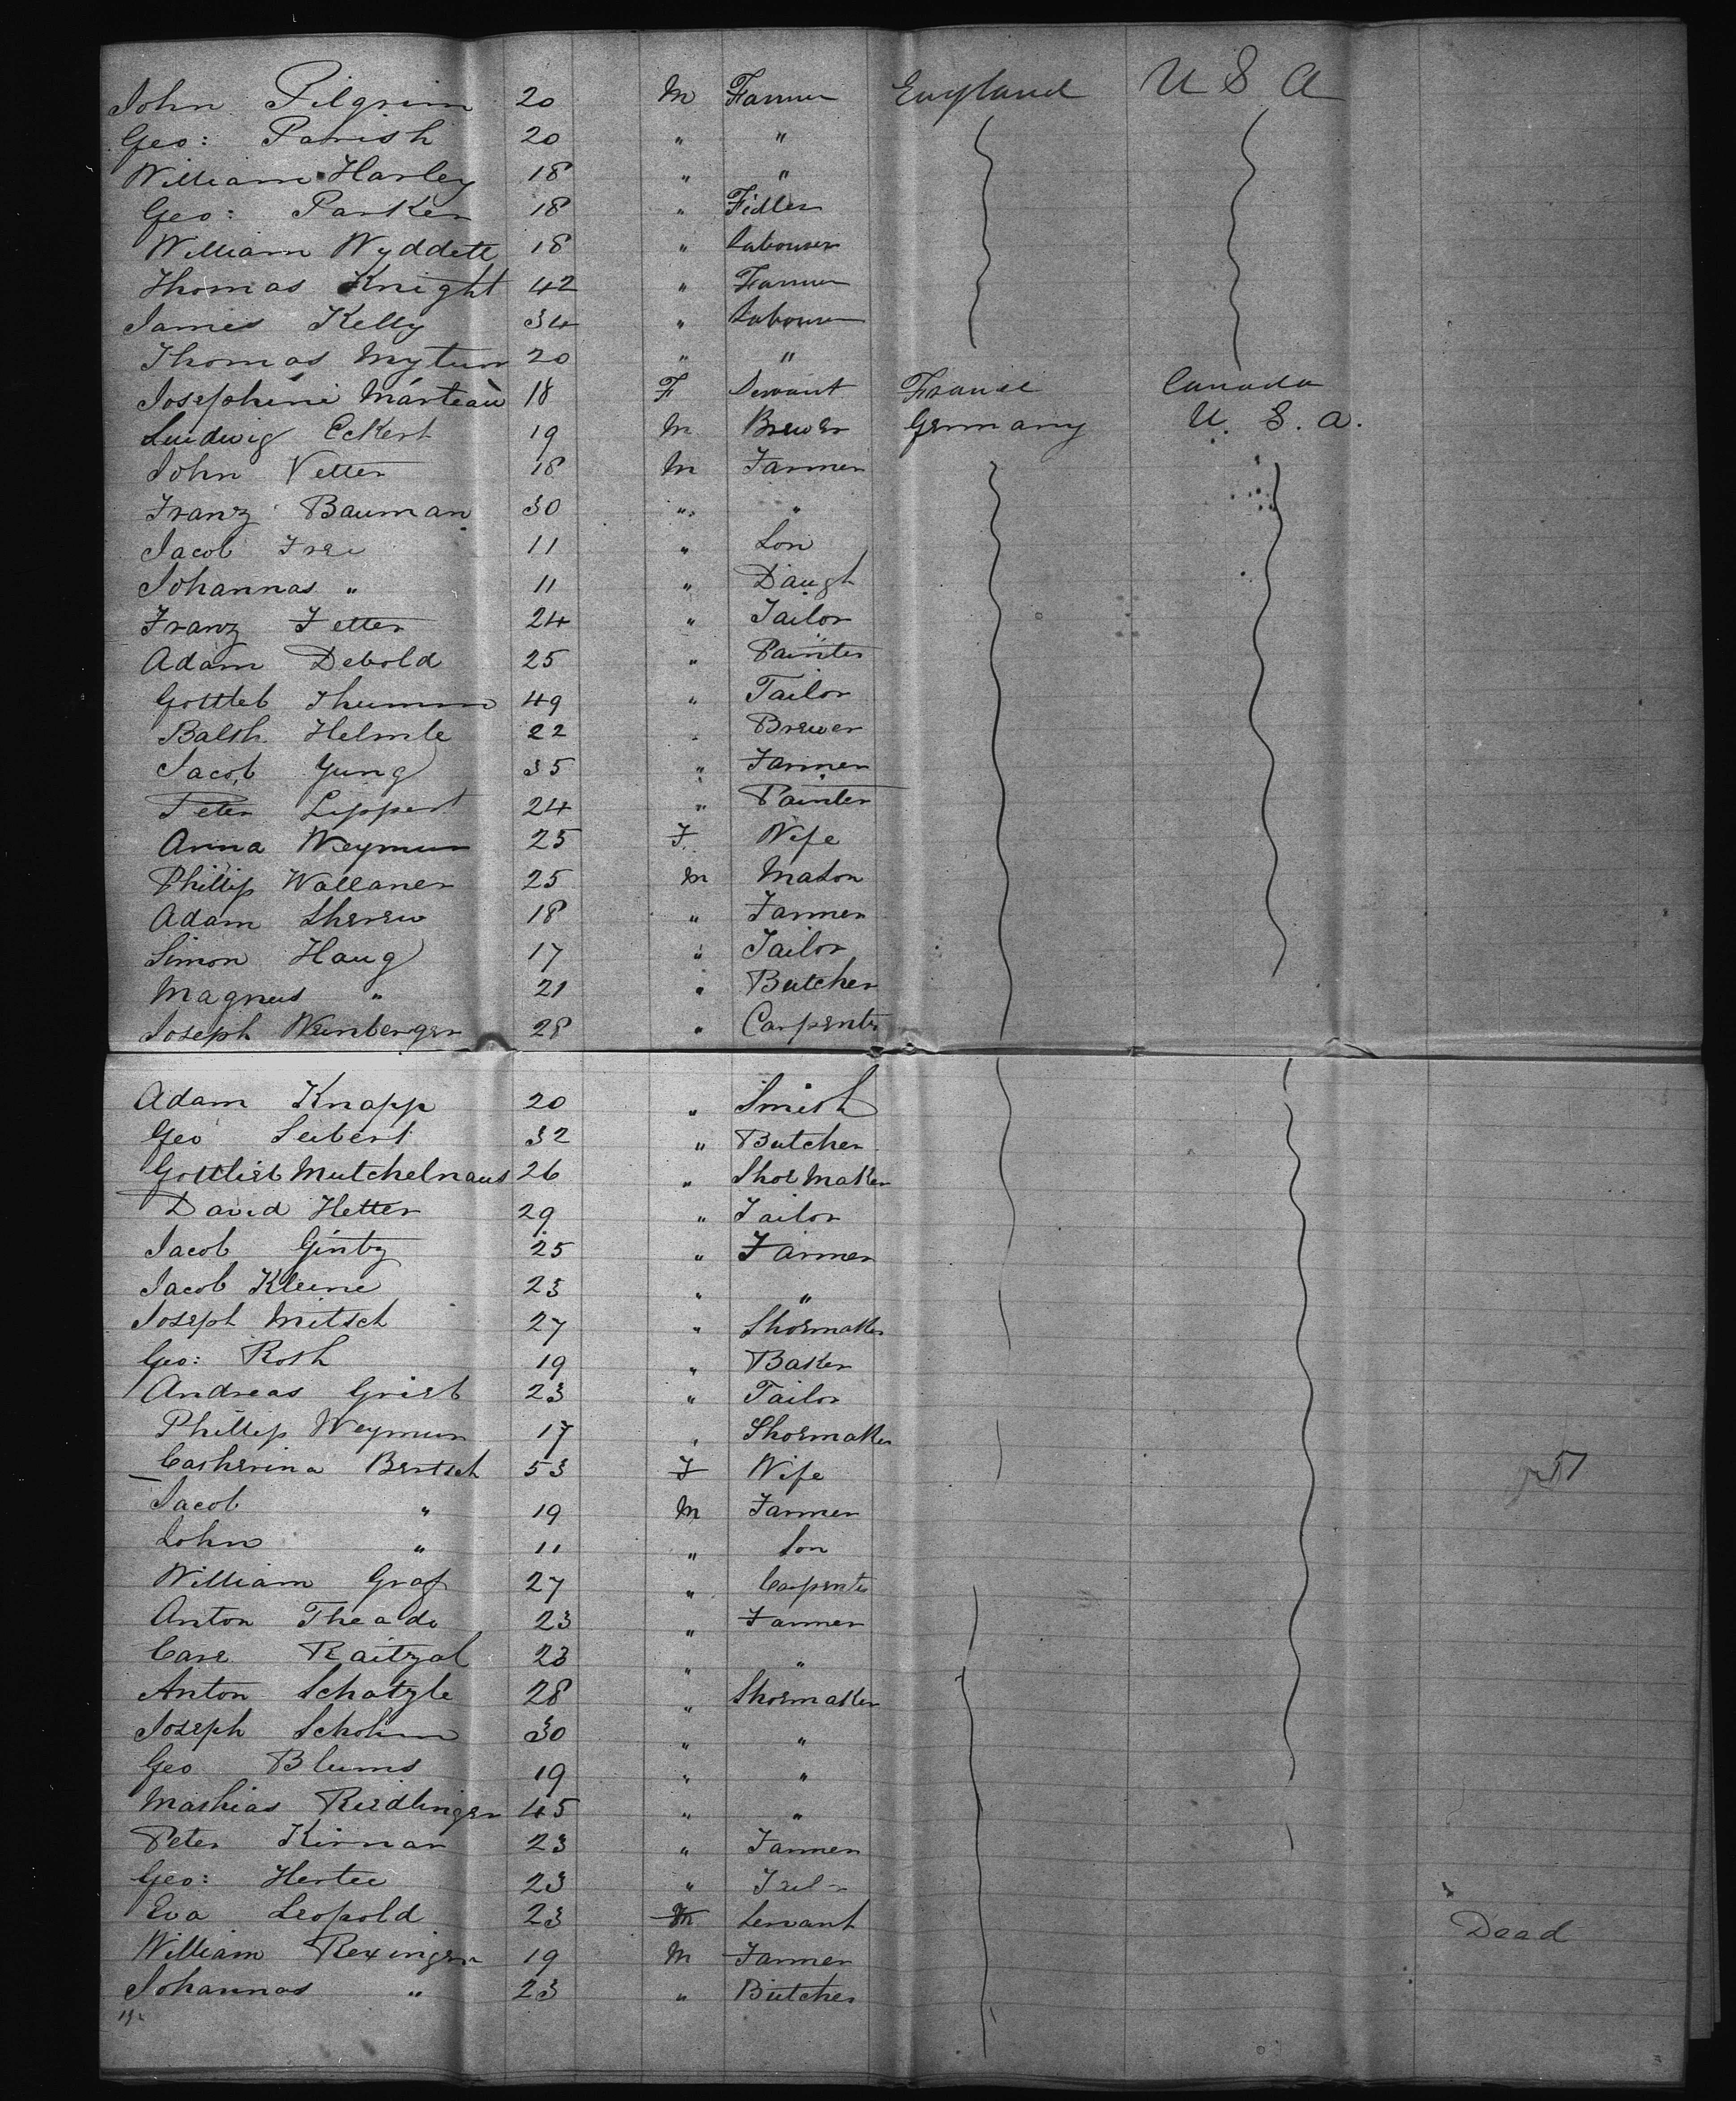 John Pilgrim 20 M Farmer England U S A
Geo: Parish 20 " "
William Harley 18 " "
Geo: Parker 18 " Fidler
William Wyddett 18 " Labourer
Thomas Knight 42 " Farmer
James Kelly 34 " Labourer
Thomas Mytum 20 " "
Josephine Marteau 18 F Servant France Canada
Ludwig Eckert 19 M Brewer Germany U. S. A.
John Vetter 18 M Farmer
Franz Bauman 30 " "
Jacob Frei 11 " Son
Johannas " 11 " Daugh
Franz Fetter 24 " Tailor
Adam Debold 25 " Painter
Gottleb Thumm 49 " Tailor
Balth. Helmle 22 " Brewer
Jacob Yung 35 " Farmer
Peter Lippert 24 " Painter
Anna Weymun 25 F. Wife
Phillip Wallaner 25 M Mason
Adam Sherew 18 " Farmer
Simon Haug 17 " Tailor
Magnus " 21 " Butcher
Joseph Weinberger 28 " Carpenter
Adam Knapp 20 " Smith
Geo Seibert 32 " Butcher
Gottlieb Mutchelnaus 26 " Shoe Maker
David Hetter 29 " Tailor
Jacob Gintz 25 " Farmer
Jacob Kleine 23 " "
Joseph Mitsch 27 " Shoemaker
Geo: Roth 19 " Baker
Andreas Grieb 23 " Tailor
Phillip Weymun 17 " Shoemaker
Catherina Bertsch 53 F Wife 51
Jacob " 19 M Farmer
John " 11 " Son
William Graf 27 " Carpenter
Anton Theado 23 " Farmer
Carl Raitzal 23 " "
Anton Schatzle 28 " Shoemaker
Joseph Schohm 30 " "
Geo Blums 19 " "
Mathias Riedlinger 45 " "
Peter Kirnar 23 " Farmer
Geo: Hertel 23 " Tailor
Eva Leopold 23 Servant Dead
William Rexinger 19 M Farmer
Johannas " 23 " Butcher